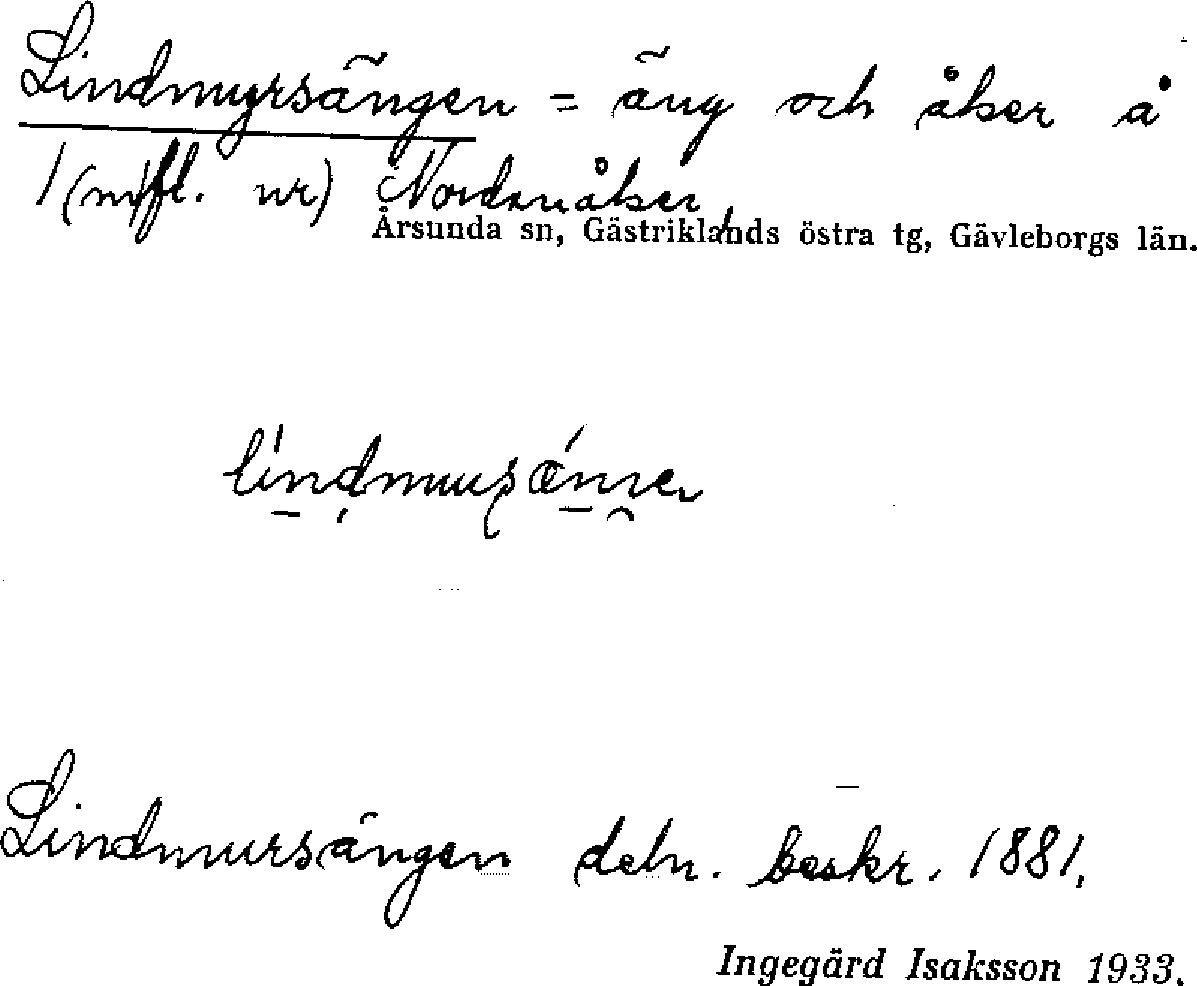 Lindmyrsängen = äng och åker å
1 (m fl. nr) Nordanåker,
Årsunda sn, Gästriklands östra tg, Gävleborgs län.
Lindmursängen deln. beskr. 1881.
Ingegärd Isaksson 1933.